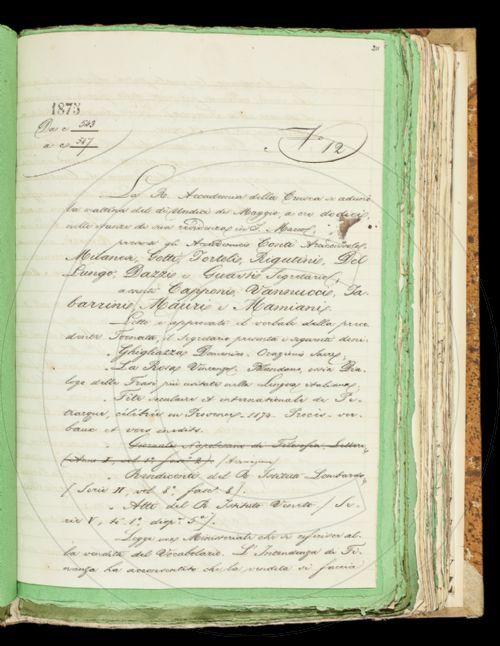 20
1875
Da c. 543
a c. 547
N° 12
La R. Accademia della Crusca si adunò
la mattina del dì undici di Maggio, a ore dodici,
nelle stanze di sua residenza in S. Marco,
presenti gli Accademici Conti Arciconsolo,
Milanesi, Gotti, Tortoli, Rigutini, Del
Lungo, Dazzi e Guasti Segretario,
assenti Capponi, Vannucci, Ta-
barrini, Mauri e Mamiani.
Letto e approvato il verbale della prece-
dente Tornata, il Segretario presenta i seguenti doni:
Ghighiazza Ocagione Sacre,
La Rosa Vincenzo, ossia Dia-
logo delle Frasi più usitate nella lingua italiana,
Fête séculaire et internationale de Pé-
trarque, célébrée en Provence, 1874. Procès-ver-
baux et vers inédits.
Giornale Napoletano di Filosofia, Lettere
(Anno I, vol. 1°, fasc. 2)
Rendiconti del R. Istituto Lombardo,
(Serie II, vol. 8°, fasc. 8).
Atti del R. Istituto Veneto (Se-
rie V, t. 1°, disp. 5ª).
Legge una Ministeriale che si riferisce al-
la vendita del Vocabolario. L'Intendenza di Fi-
nanza ha acconsentito che la vendita si faccia